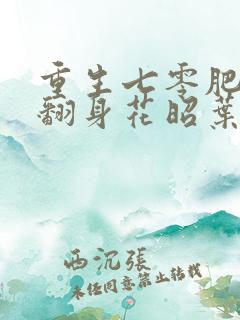 重生七零肥
翻身花昭葉
西沉張
未经同意禁止转载